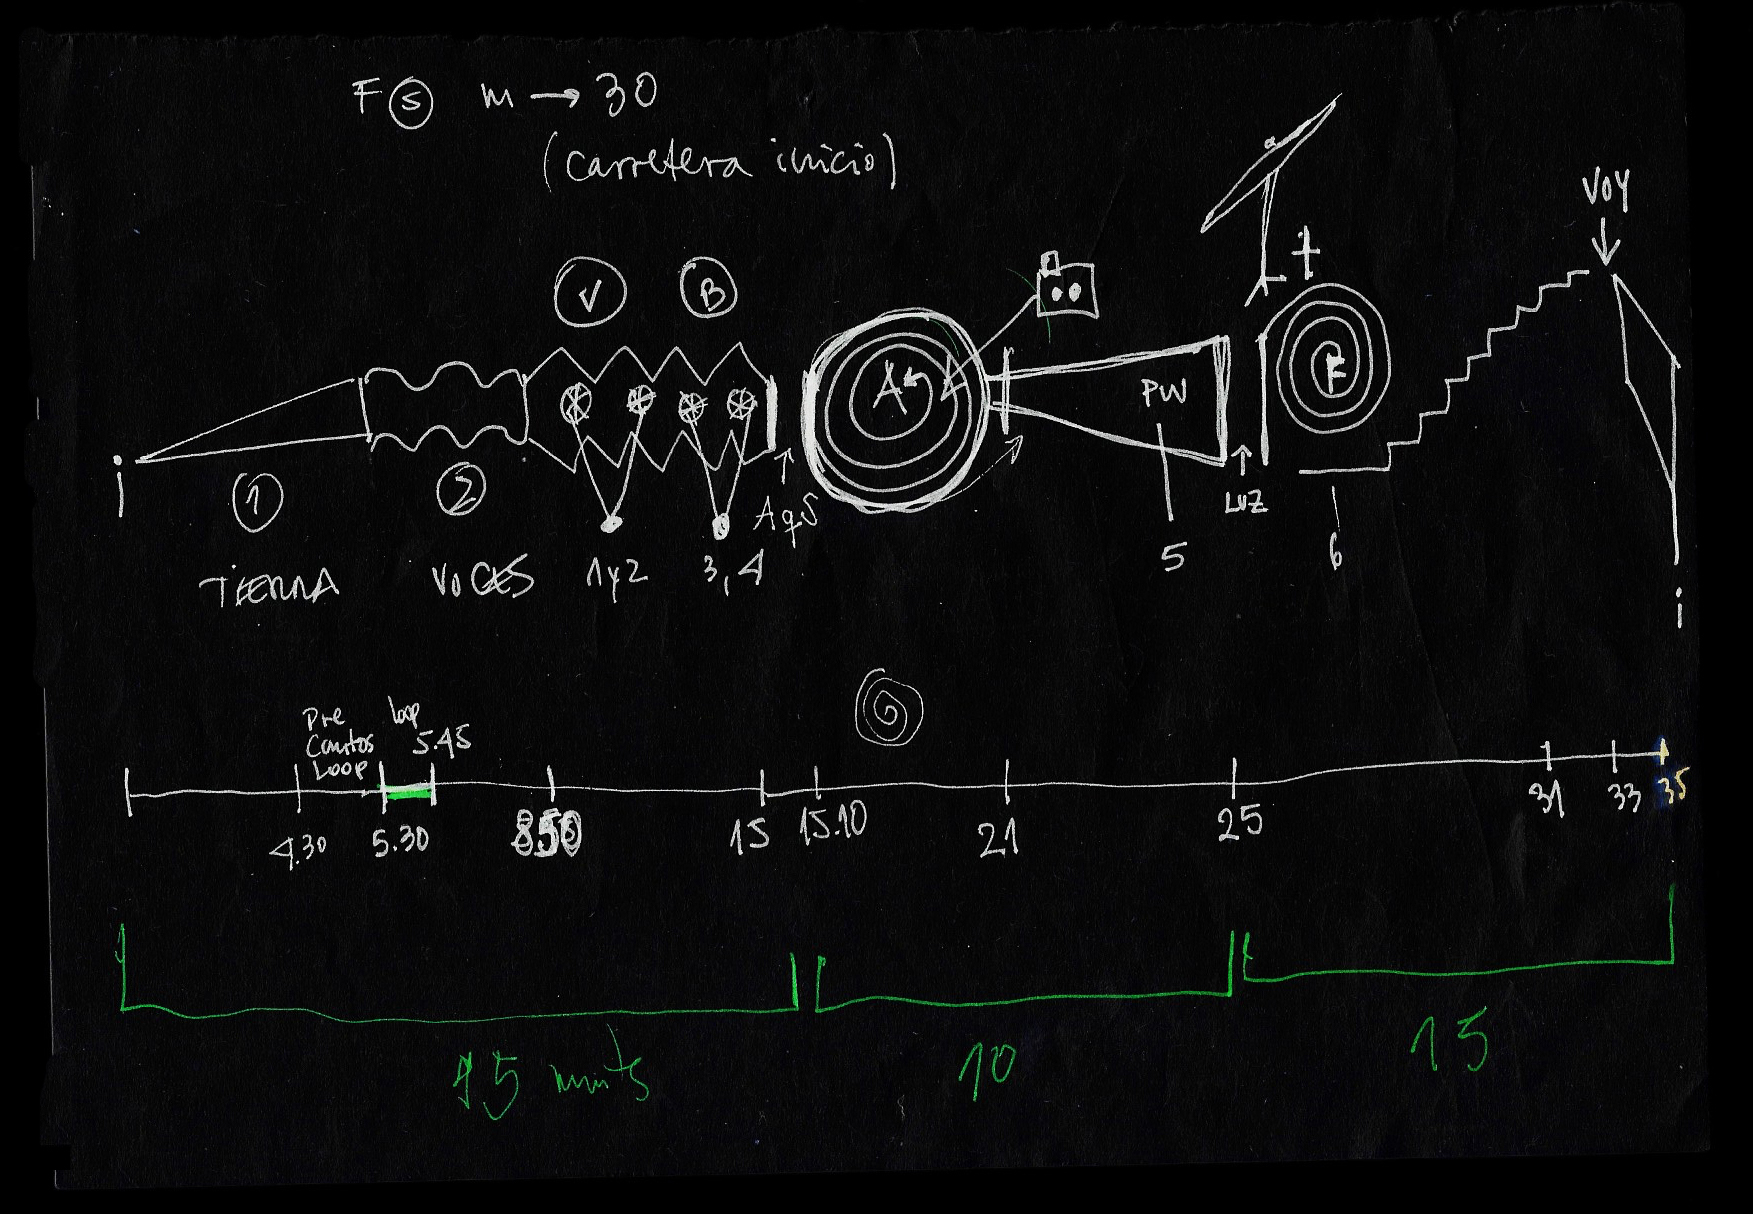 F Ⓢ m → 30
(carretera inicio)
VOY
V B
A
PW
F
i
1 2
Aqs
LUZ
TIERRA VOCES 1y2 3,4 5 6
i
Pre
Cantos
Loop
loop
5.45
4.30 5.30 850 15 15.10 21 25 31 33 35
15 10 15